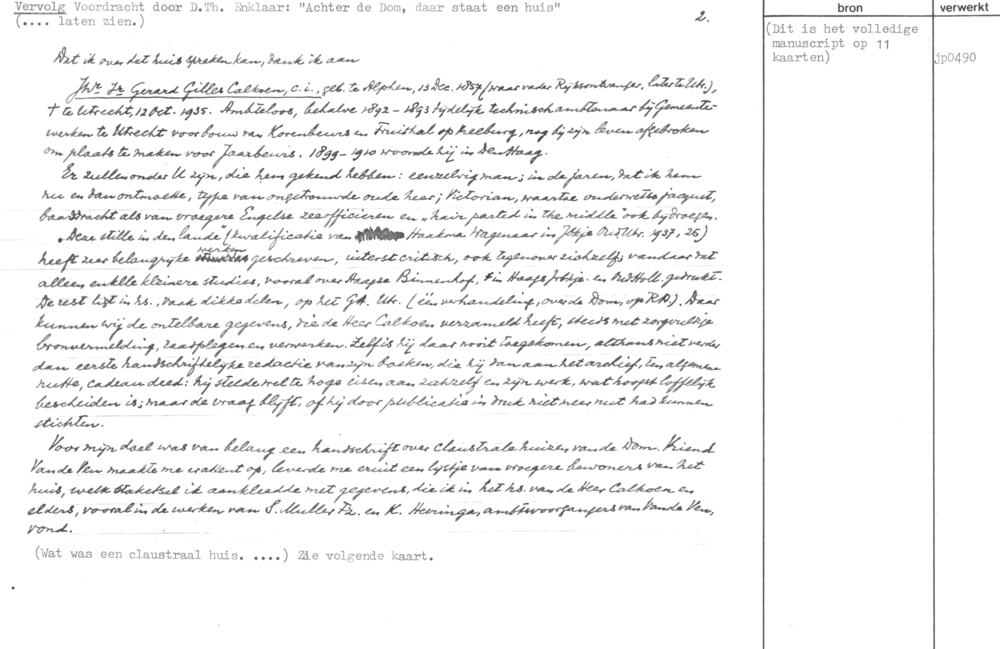 Vervolg Voordracht door D.Th. Enklaar: "Achter de Dom, daar staat een huis"
(.... laten zien.)
2.
bron
verwerkt
(Dit is het volledige
manuscript op 11
kaarten)
jp0490
Dat ik over dat huis spreken kan, dank ik aan
Jhr. Ir Gerard Gilles Calkoen, c.i., geb. te Alphen, 13 Dec. 1857 (waar vader Rijksontvanger, later te Utr.),
† te Utrecht, 12 Oct. 1935. Ambteloos, behalve 1892-1893 tijdelijk technisch ambtenaar bij Gemeente-
werken te Utrecht voor bouw van Korenbeurs en Fruithal op Vreeburg, nog bij zijn leven afgebroken
om plaats te maken voor Jaarbeurs. 1899-1910 woonde hij in Den Haag.
Er zullen onder U zijn, die hem gekend hebben: eenzelvig man; in de jaren, dat ik hem
nu en dan ontmoette, type van ongetrouwde oude heer; Victorian, waartoe ouderwetse jacquet,
baarddracht als van vroegere Engelse zeeofficieren en „hair parted in the middle" ook bijdroegen.
„Deze stille in den lande" (kwalificatie van Haakma Wagenaar in Jbkje Oud Utr. 1937, 25)
heeft zeer belangrijke werken geschreven, uiterst critisch, ook tegenover zichzelf; vandaar dat
alleen enklle kleinere studies, vooral over Haagse Binnenhof, in Haags Jrbkje. en Oud Holl. gedrukt.
De rest ligt in hs., vaak dikke delen, op het GA. Utr. (één verhandeling, over de Dom, op R.A.). Daar
kunnen wij de ontelbare gegevens, die de Heer Calkoen verzameld heeft, steeds met zorgvuldige
bronvermelding, raadplegen en verwerken. Zelf is hij daar nooit toegekomen, althans niet verder
dan eerste handschriftelijke redactie van zijn boeken, die hij dan aan het archief, ten algemene
nutte, cadeau deed: hij stelde wel te hoge eisen aan zichzelf en zijn werk, wat hoogst loffelijk
bescheiden is; maar de vraag blijft, of hij door publicatie in druk niet meer nut had kunnen
stichten.
Voor mijn doel was van belang een handschrift over claustrale huizen van de Dom. Vriend
Van de Ven maakte me er attent op, leverde me eruit een lijstje van vroegere bewoners van het
huis, welk staketsel ik aankleedde met gegevens, die ik in het hs. van de Heer Calkoen en
elders, vooral in de werken van S. Muller Fz. en K. Heeringa, ambtsvoorgangers van Van de Ven,
vond.
(Wat was een claustraal huis. ....) Zie volgende kaart.